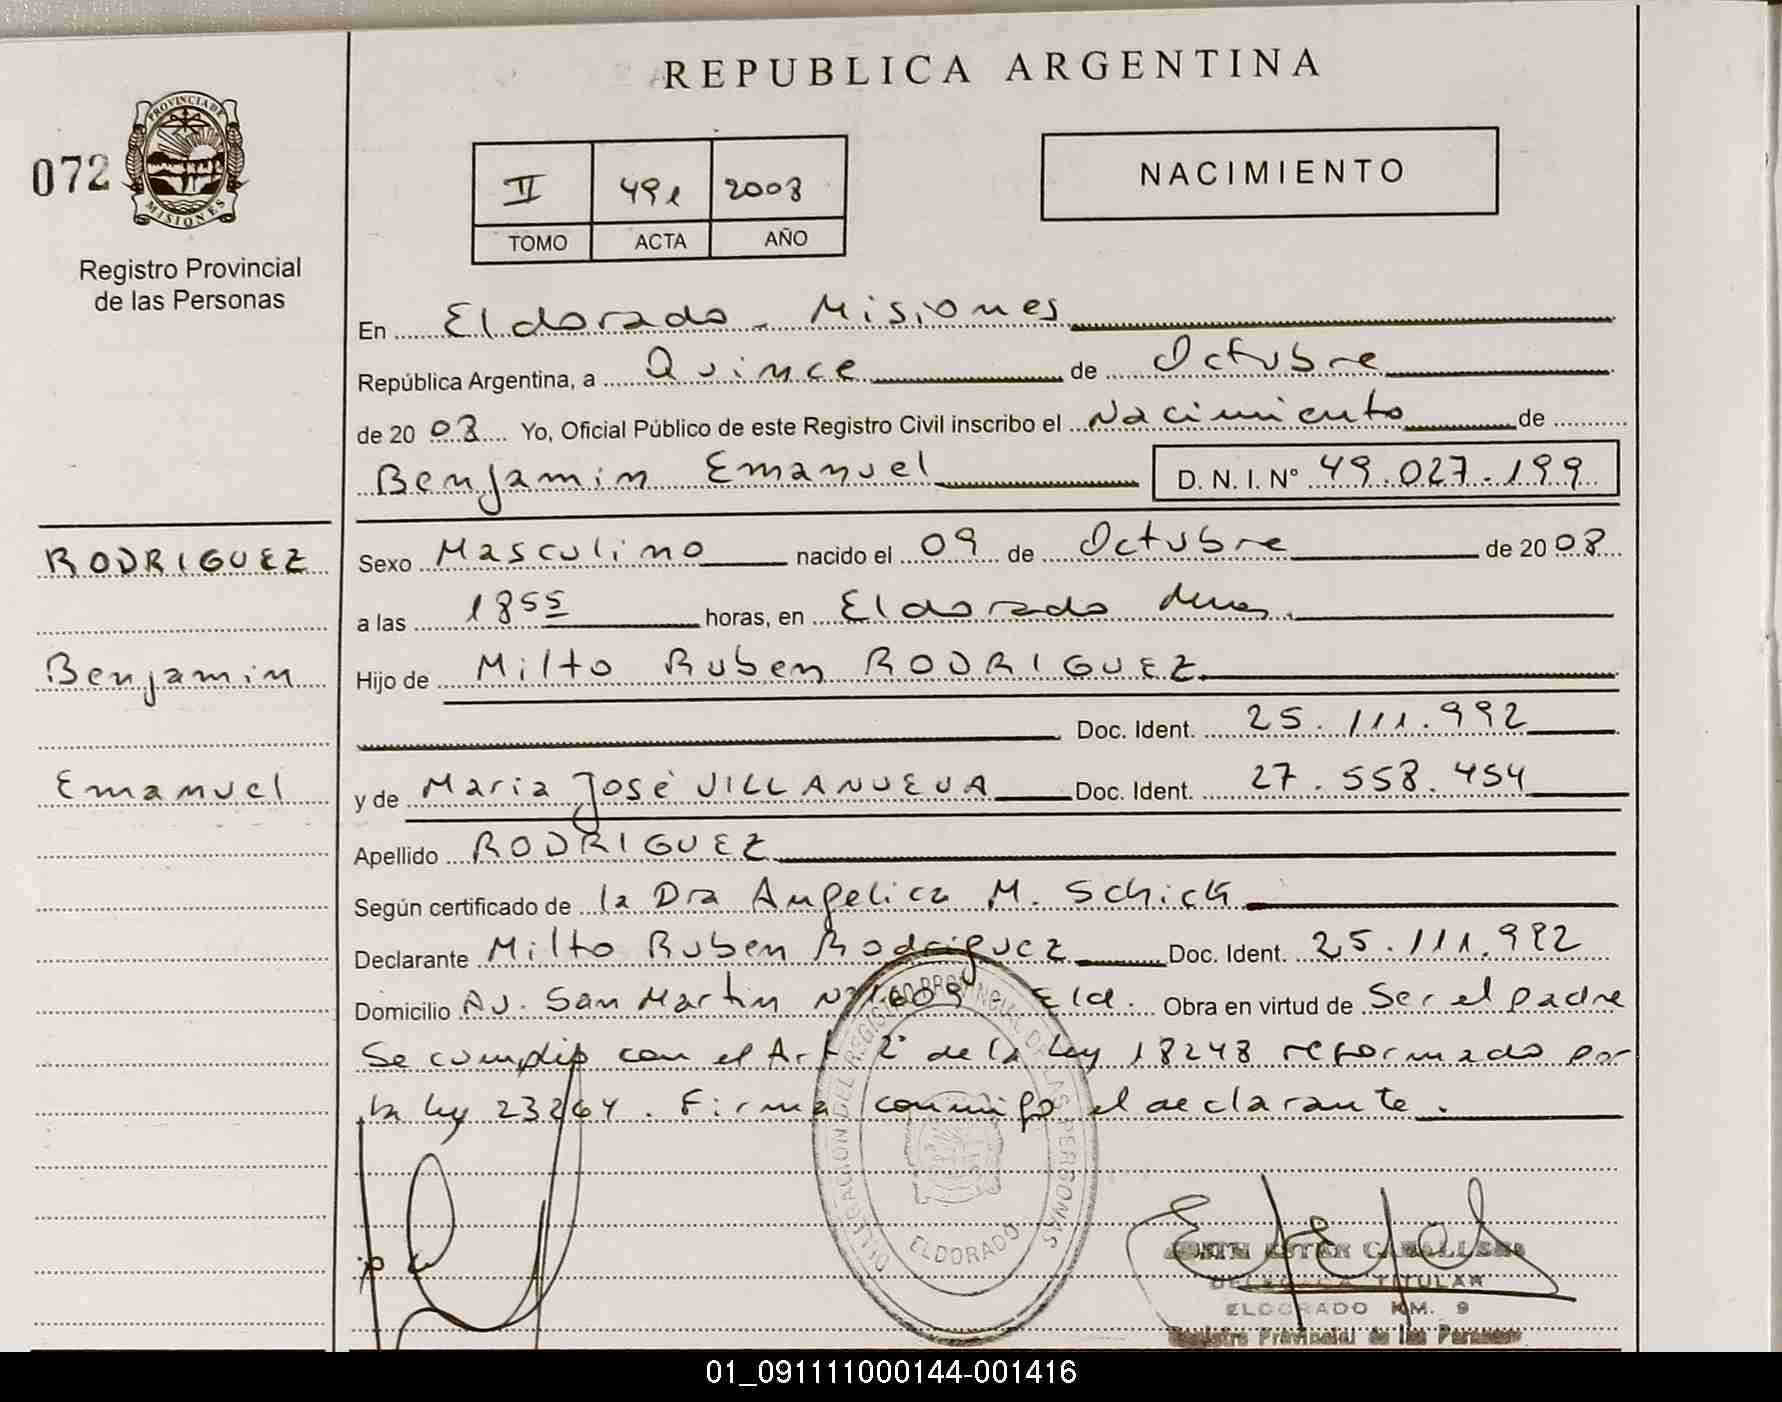 REPUBLICA ARGENTINA
072
PROVINCIA DE
MISIONES
Registro Provincial
de las Personas
II 491 2008
TOMO ACTA AÑO
NACIMIENTO
En Eldorado - Misiones
República Argentina, a Quince de Octubre
de 20 08 Yo, Oficial Público de este Registro Civil inscribo el Nacimiento de
Benjamin Emanuel D. N. I. Nº 49.027.199
RODRIGUEZ
Sexo Masculino nacido el 09 de Octubre de 20 08
a las 18 55 horas, en Eldorado
Benjamin
Hijo de Milto Ruben RODRIGUEZ
Doc. Ident. 25.111.992
Emanuel
y de Maria José VILLANUEVA Doc. Ident. 27.558.454
Apellido RODRIGUEZ
Según certificado de la Dra Angelica M. Schick
Declarante Milto Ruben Rodriguez Doc. Ident. 25.111.992
Domicilio Av. San Martin Nº1609 Eld. Obra en virtud de Ser el padre
Se cumplio con el Art 2º de la Ley 18248 reformado por
la Ley 23264. Firma conmigo el declarante.
DELEGACION DEL REGISTRO PROVINCIAL DE LAS PERSONAS
ELDORADO
CABALLERO
DELEGADA TITULAR
ELDORADO KM. 9
Registro Provincial de las Personas
01_091111000144-001416